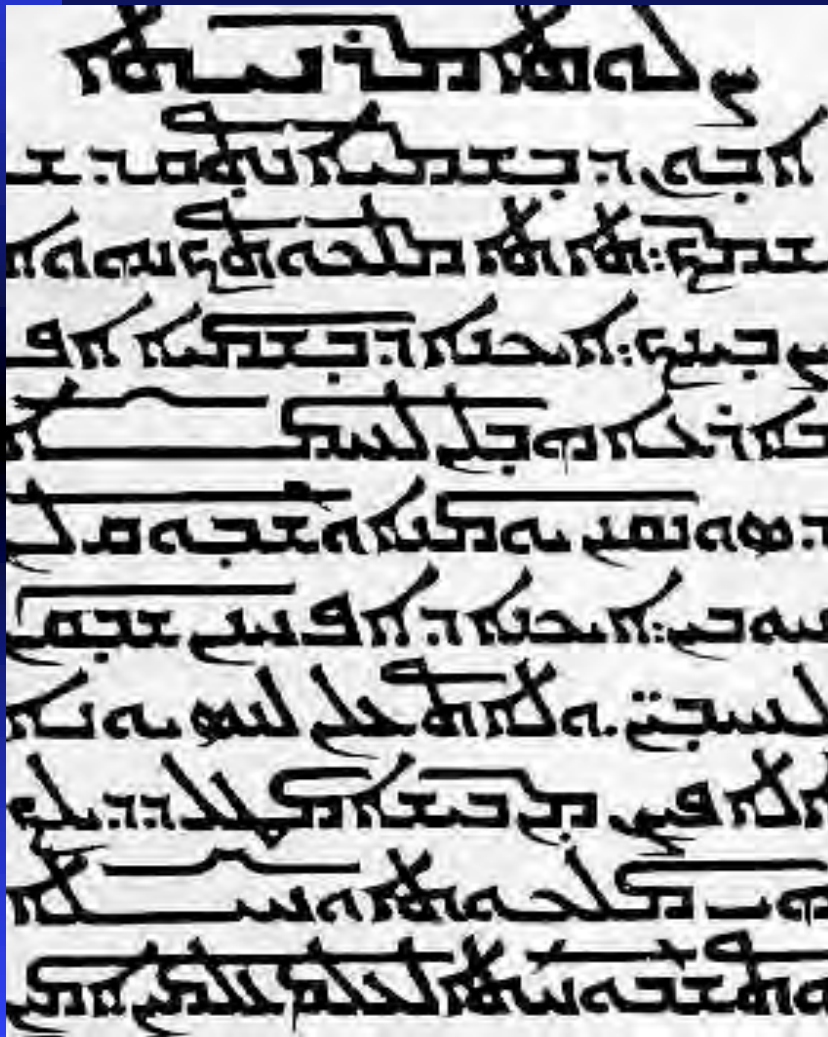 ܨܠܘܬܐ ܡܪܢܝܬܐ
ܐܒܘܢ ܕܒܫܡܝܐ ܢܬܩܕܫ
ܫܡܟ܆ ܬܐܬܐ ܡܠܟܘܬܟ ܢܗܘܐ
ܨܒܝܢܟ܆ ܐܝܟܢܐ ܕܒܫܡܝܐ ܐܦ
ܒܐܪܥܐ ܗܒ ܠܢ ܠܚܡܐ
ܕܣܘܢܩܢܢ ܝܘܡܢܐ ܘܫܒܘܩ ܠܢ
ܚܘܒܝܢ܆ ܐܝܟܢܐ ܕܐܦ ܚܢܢ ܫܒܩܢ
ܠܚܝܒܝ̈ܢ. ܘܠܐ ܬܥܠܢ ܠܢܣܝܘܢܐ
ܐܠܐ ܦܨܢ ܡܢ ܒܝܫܐ ܡܛܠ ܕܕܝܠܟ
ܗܝ ܡܠܟܘܬܐ ܘܚܝܠܐ
ܘܬܫܒܘܚܬܐ ܠܥܠܡ ܥܠܡܝܢ ܐܡܝܢ